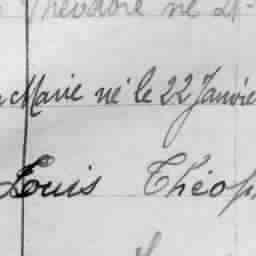 Théodore né
Marie né le 22 Janvie
Louis Théop